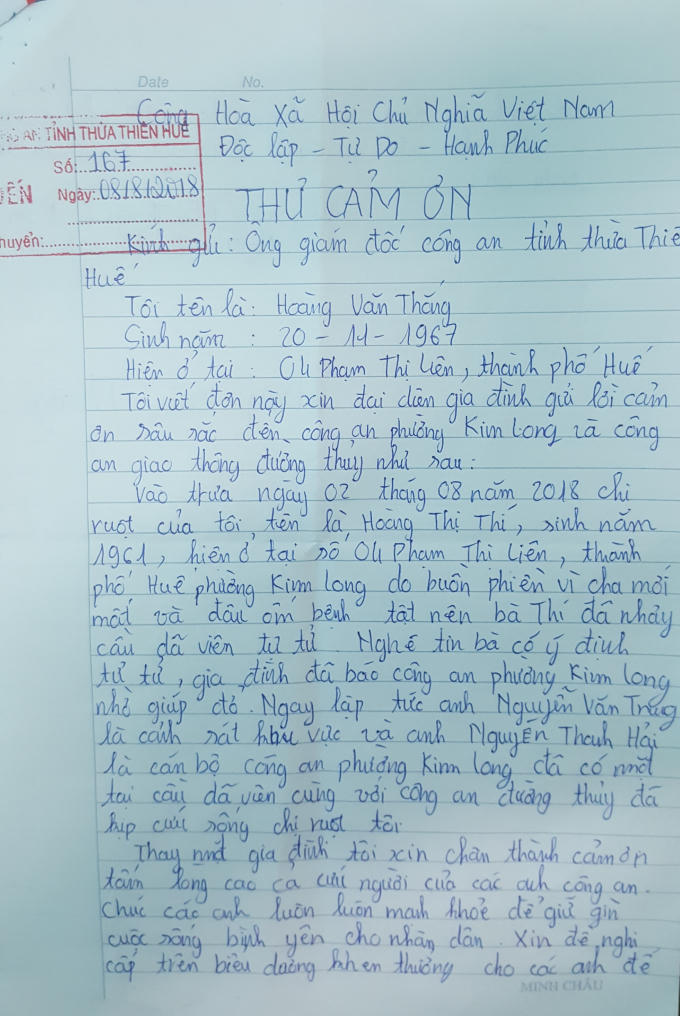 Date No.
Cộng Hoà Xã Hội Chủ Nghĩa Việt Nam
AN TỈNH THỪA THIÊN HUẾ
Độc lập - Tự Do - Hạnh Phúc
Số: 167
ĐẾN Ngày: 08/8/2018
THƯ CẢM ƠN
huyển:
Kính gửi: Ông giám đốc công an tỉnh thừa Thiê
Huế
Tôi tên là: Hoàng Văn Thắng
Sinh năm : 20 - 11 - 1967
Hiện ở tại : 04 Phạm Thị Liên, thành phố Huế
Tôi viết đơn này xin đại diện gia đình gửi lời cảm
ơn sâu sắc đến công an phường Kim Long và công
an giao thông đường thuỷ như sau:
Vào trưa ngày 02 tháng 08 năm 2018 chị
ruột của tôi tên là Hoàng Thị Thí, sinh năm
1961, hiện ở tại số 04 Phạm Thị Liên, thành
phố Huế phường Kim Long do buồn phiền vì cha mới
mất và đau ốm bệnh tật nên bà Thí đã nhảy
cầu dã viên tự tử. Nghe tin bà có ý định
tự tử, gia đình đã báo công an phường Kim Long
nhờ giúp đỡ. Ngay lập tức anh Nguyễn Văn
là cảnh sát khu vực và anh Nguyễn Thanh Hải
là cán bộ công an phường Kim Long đã có mặt
tại cầu dã viên cùng với công an đường thủy đã
kịp cứu sống chị ruột tôi.
Thay mặt gia đình tôi xin chân thành cảm ơn
tấm lòng cao cả cứu người của các anh công an.
Chúc các anh luôn luôn mạnh khoẻ để giữ gìn
cuộc sống bình yên cho nhân dân. Xin đề nghị
cấp trên biểu dương khen thưởng cho các anh để
MINH CHÂU